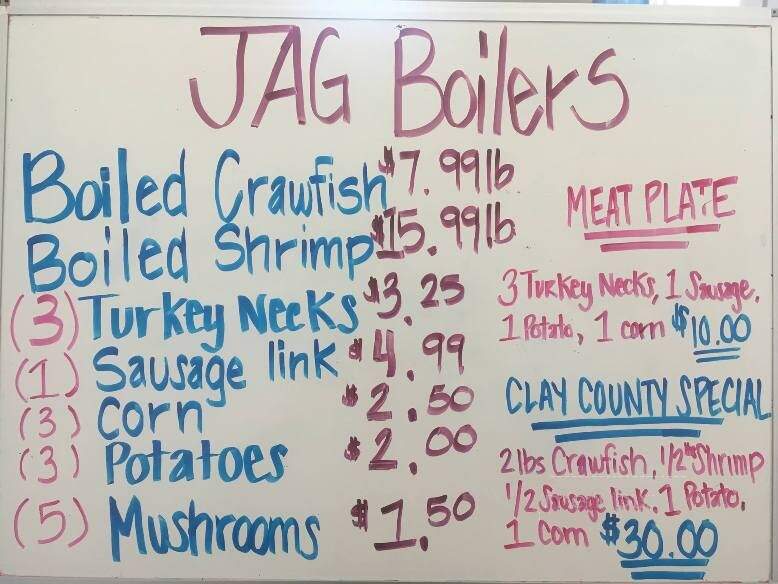 JAG Boilers
Boiled Crawfish $7.99lb
Boiled Shrimp $15.99lb
(3) Turkey Necks $3.25
(1) Sausage link $4.99
(3) Corn $2.50
(3) Potatoes $2.00
(5) Mushrooms $1.50
MEAT PLATE
3 Turkey Necks, 1 Sausage,
1 Potato, 1 corn $10.00
CLAY COUNTY SPECIAL
2lbs Crawfish, 1/2 lb Shrimp
1/2 Sausage link, 1 Potato,
1 Corn $30.00